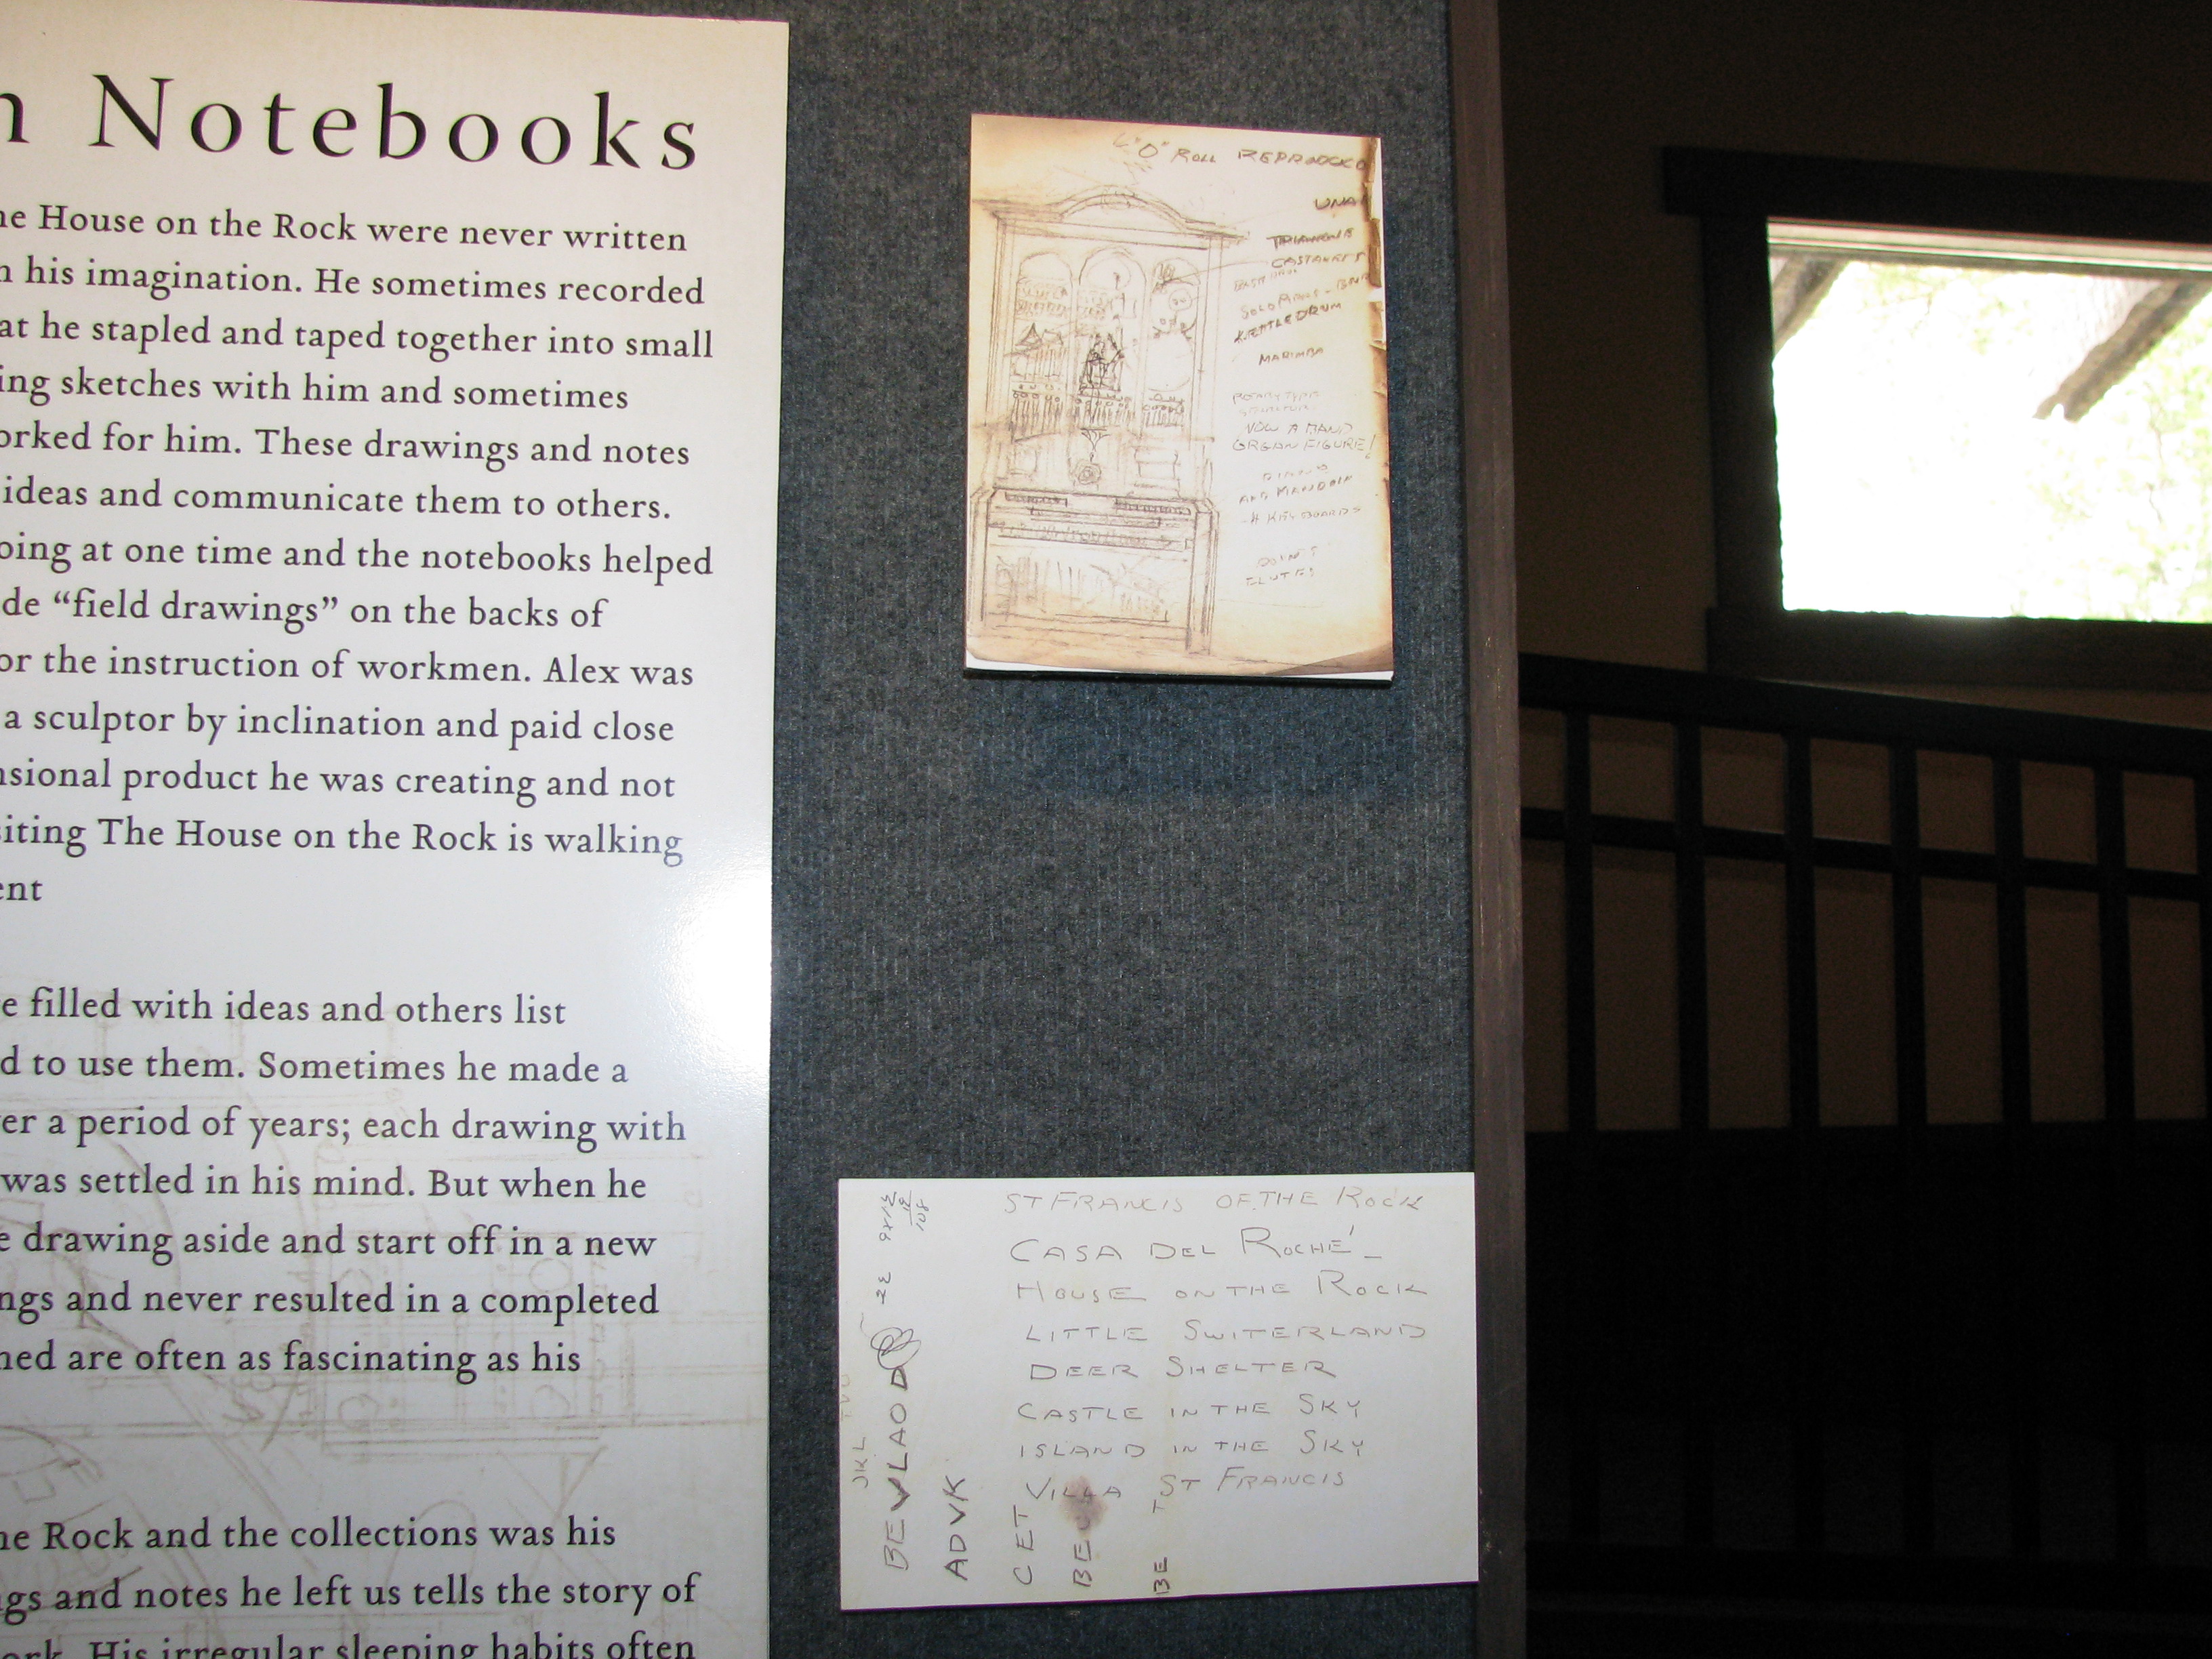 n Notebooks
ne House on the Rock were never written
n his imagination. He sometimes recorded
at he stapled and taped together into small
ing sketches with him and sometimes
orked for him. These drawings and notes
ideas and communicate them to others.
oing at one time and the notebooks helped
de “field drawings” on the backs of
or the instruction of workmen. Alex was
a sculptor by inclination and paid close
nsional product he was creating and not
siting The House on the Rock is walking
ent
e filled with ideas and others list
d to use them. Sometimes he made a
er a period of years; each drawing with
was settled in his mind. But when he
e drawing aside and start off in a new
ngs and never resulted in a completed
ned are often as fascinating as his
ne Rock and the collections was his
gs and notes he left us tells the story of
ork. His irregular sleeping habits often
"O" ROLL
CASTANETS
KETTLE DRUM
MARIMBA
NOW A HAND
ORGAN FIGURE!
AND MANDOLIN
4 KEYBOARDS
ST FRANCIS OF THE ROCK
CASA DEL ROCHÉ
HOUSE ON THE ROCK
LITTLE SWITERLAND
DEER SHELTER
CASTLE IN THE SKY
ISLAND IN THE SKY
VILLA ST FRANCIS
JKL
BEVLAOD
ADVK
CET
BE
BE